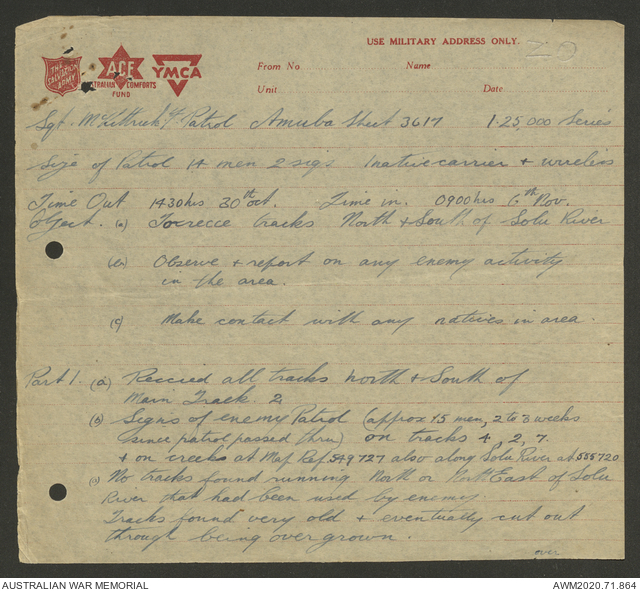 USE MILITARY ADDRESS ONLY.
THE SALVATION ARMY
ACF
AUSTRALIAN COMFORTS FUND
YMCA
From No. Name
Unit Date
Sgt. McKittrick's Patrol Amuba Sheet 3617 1:25,000 Series
Size of Patrol 14 men 2 sigs 1 native carrier + wireless
Time Out 1430 hrs 30th Oct. Time in. 0900 hrs 6th Nov.
Object. (a) To recce tracks North + South of Solu River
(b) Observe + report on any enemy activity
in the area.
(c) Make contact with any natives in area.
Part 1. (a) Reccied all tracks North + South of
Main Track 2
(b) Signs of enemy Patrol (approx 15 men, 2 to 3 weeks
since patrol passed thru) on tracks 4, 2, 7.
+ on creeks at Map Ref. 549727 also along Solu River at 555720
(c) No tracks found running North or North East of Solu
River that had been used by enemy.
Tracks found very old + eventually cut out
through being over grown.
over
AUSTRALIAN WAR MEMORIAL
AWM2020.71.864